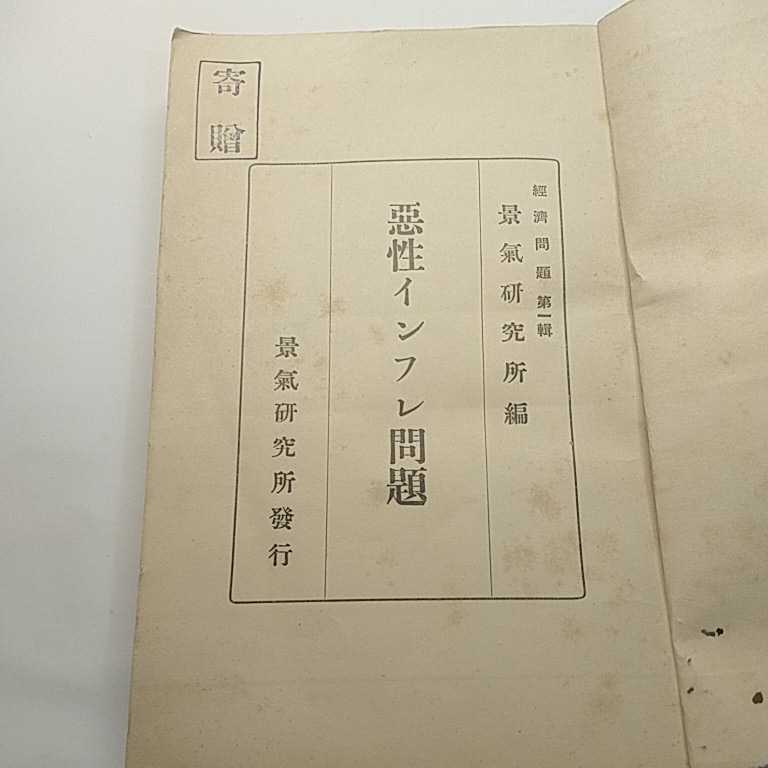 經濟問題 第一輯
景氣研究所編
惡性インフレ問題
景氣研究所發行
寄贈